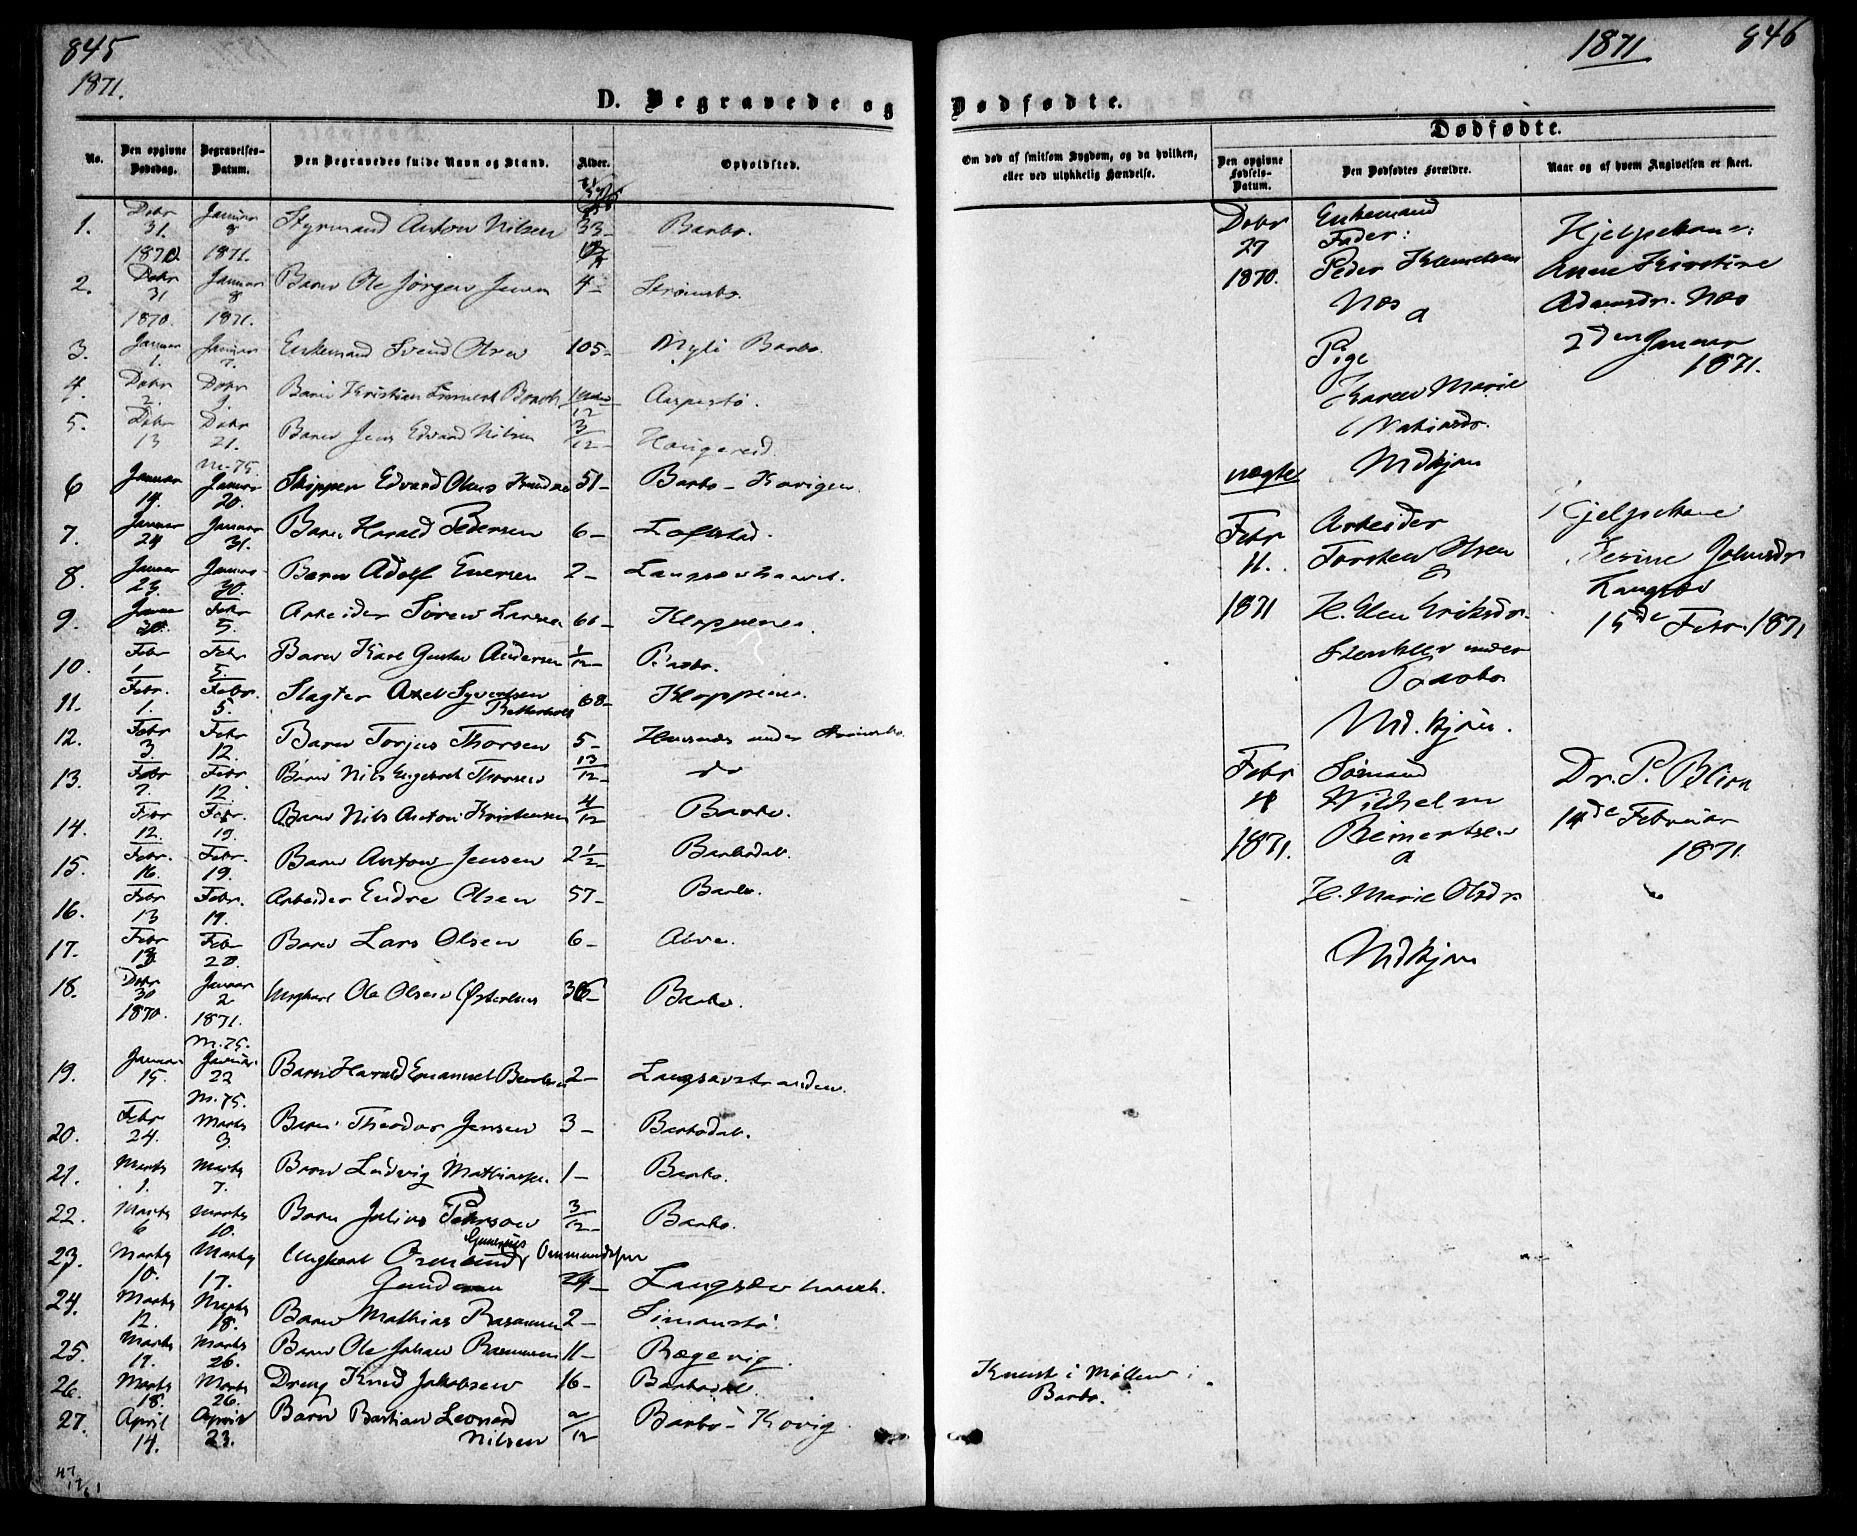 845
1871.
D. Begravede og
No.
Den opgivne Dødsdag.
Begravelses-Datum.
Den Begravedes fulde Navn og Stand.
Alder.
Opholdssted.
1. Debr 31. 1870. Januar 8 1871. Styrmand Anton Nilsen 33– Barbo.
2. Debr 31 1870. Januar 8 1871. Barn Ole Jørgen Jensen 4–
3. Januar 1. Januar 7. Enkemand Svend Olsen 105– Myli Barbo.
4. Debr 2. Debr 9. Barn Kristian
5. Debr 13 Debr 21. Barn Jens Edvard Nilsen 3/12– Haugereid
M. 75.
6 Januar 14. Januar 20. Skipper Edvard Olaus Knudsen 51– Barbo – Kavigen.
7. Januar 24 Januar 31. Barn Harald Pedersen 6– Loftstad.
8. Januar 23. Januar 30. Barn Adolf Evensen 2–
9. Januar 30. Febr 5. Arbeider Søren Larsen 66– Kloppene.
10. Febr 1. Febr 5. Barn Karl Gustav Andersen 1/12– Barbo.
11. Febr. 1. Febr. 5. Slagter Axel Syvertsen 68– Kloppene.
12. Febr 3 Febr 12. Barn Torjus Thorsen 5– under
13. Febr 7. Febr 12. Barn Nils Engebret Thorsen 13/12– do
14. Febr 12. Febr. 19. Barn Nils Anton Kristensen 4/12 Barbo.
15. Febr. 16. Febr. 19. Barn Anton Jensen 2 1/2– Barbodal.
16. Febr 13 Febr. 19. Arbeider Endre Olsen 57– Barbo.
17. Febr Febr 20. Barn Lars Olsen 6–
18. Debr 30 1870. Januar 2 1871. Ungkarl Ole Olsen Østerhus 36– Barbo.
M. 75.
19. Januar 15. Januar 22 Barn Harald Emanuel 2– Langsævstranden.
M. 75.
20. Febr 24. Marts 3. Barn Theodor Jensen 3– Barbodal.
21. Marts 1. Marts 7. Barn Ludvig Mathiasen 1– Barbo.
22. Marts 6 Marts 10. Barn Julius 3/12– Barbo.
23. Marts 10. Marts 17. Ungkarl Osmund
24–
24. Marts 12. Marts 18. Barn Mathias Rasmussen 2– Simonstø.
25. Marts 19. Marts 26. Barn Ole Johan Rasmussen 11– Bøgevig.
26. Marts 18. Marts 26. Dreng Knud Jakobsen 16– Barbodal.
27. April 14. April 23. Barn Bastian Leonard
Nilsen 2/12 Barbo – Kovig
1871
846
Dødfødte.
Om død af smitsom Sygdom, og da hvilken,
eller ved ulykkelig Hændelse.
Dødfødte.
Den opgivne Fødsels-Datum.
Den Dødfødtes Forældre.
Naar og af hvem Angivelsen er skeet.
Knust i Møllen i
Barbo.
Debr
27
1870.
Enkemand
Fader:
Peder
Næs
Pige
Karen Marie
Mdkjøn
Hjelpekone:
Anne Kirstine
Adamsdr. Næs
2den Januar
1871.
uægte
Febr
11.
1871
Arbeider
Torsten Olsen
&
H. Elen Eriksdr.
under
Barbo
Md.kjøn.
Hjelpekone
Langsæv
15de Febr. 1871
Febr
1871.
Sømand
Wilhelm
Reinertsen
&
H. Marie Olsdr.
Mdkjøn
Dr. P. Blom
14de Februar
1871.